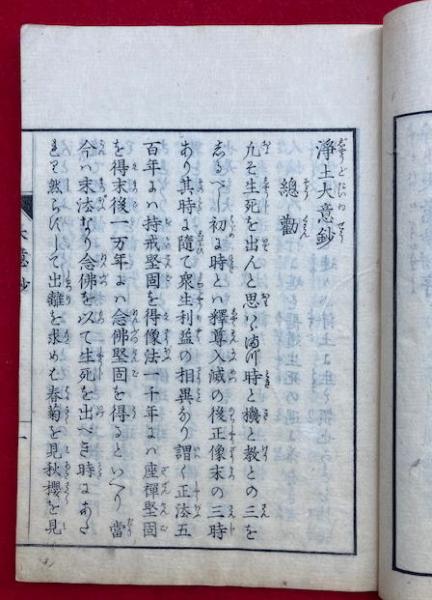 淨土大意鈔
總勸
凡そ生死を出んと思いゝまつ時と機と教との三を
しるへし初に時とハ釋尊入滅の後正像末の三時
あり其時に隨て衆生利益の相異なり謂く正法五
百年にハ持戒堅固を得像法一千年にハ座禪堅固
を得末後一万年にハ念佛堅固を得るといへり當
今ハ末法なり念佛を以て生死を出へき時にあた
れり然らすして出離を求めむ春菊を見秋櫻を見
大意鈔
一